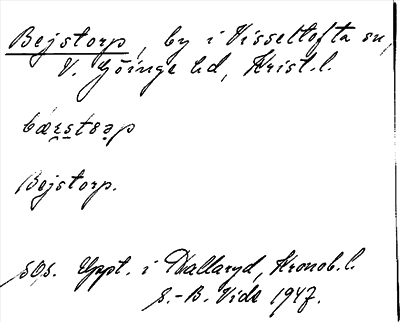 Bejstorp, by i Visseltofta sn,
V. Göinge hd, Krist. l.
Bejstorp.
Uppt. i Hallaryd, Kronob. l.
S.-B. Vide 1947.